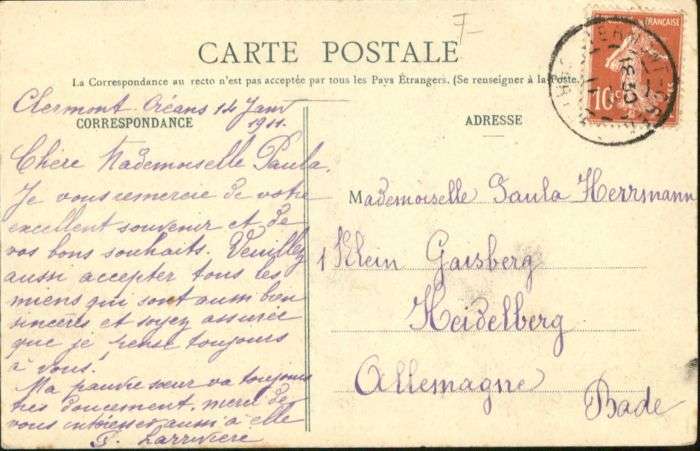 F-
CARTE POSTALE
La Correspondance au recto n'est pas acceptée par tous les Pays Étrangers. (Se renseigner à la Poste
Clermont Créans 14 Janv
1911.
CORRESPONDANCE
Chère Mademoiselle Paula.
Je vous remercie de votre
excellent souvenir et de
vos bons souhaits. Veuillez
aussi accepter tous les
miens qui sont aussi bien
sincères et soyez assurée
que je pense toujours
à vous!
Ma pauvre sœur va toujours
très doucement, merci de
vous intéresser aussi à elle
Larrivière
ADRESSE
Mademoiselle Paula Herrmann
1 Klein Gaisberg
Heidelberg
Allemagne
Bade
FRANÇAISE
10c